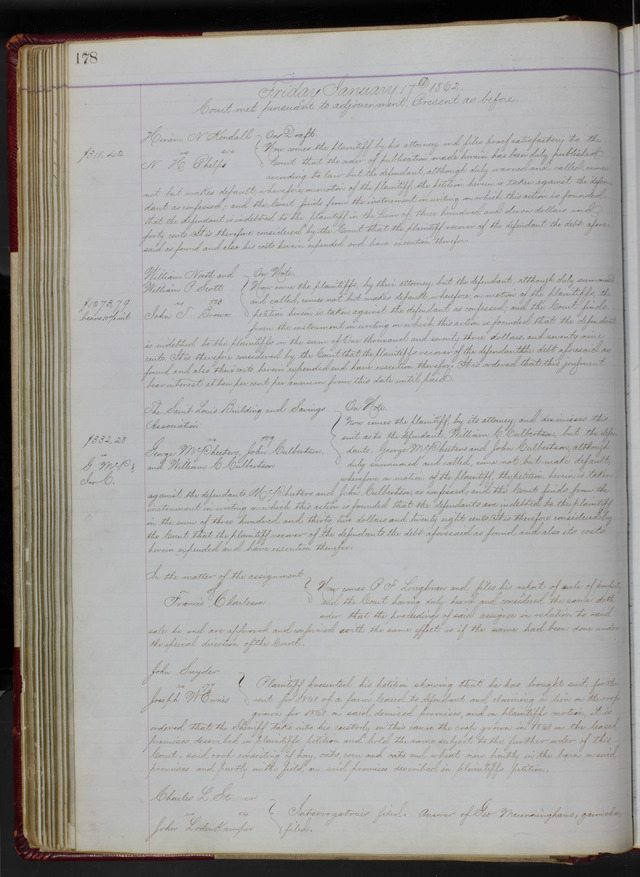 178
Friday January 17th 1862
Court met pursuant to adjournment, Present as before.
Hiram N Kendall } On Draft.
vs
N. H. Phelps
$311.40
Now comes the plaintiff by his attorney and files proof satisfactory to the
Court that the order of publication made herein has been duly published
according to law but the defendant although duly warned and called comes
not but makes default, wherefore on motion of the plaintiff, the petition herein is taken against the defen-
dant as confessed, and the Court finds from the instrument in writing on which this action is founded
that the defendant is indebted to the plaintiff in the sum of three hundred and eleven dollars and
forty cents. It is therefore considered by the Court that the plaintiff recover of the defendant the debt afore-
said as found and also his costs herein expended and have execution therefor.
William North and } On Note.
William P. Scott
vs
John T. Brown
$1073.79
Now come the plaintiffs, by their attorney, but the defendant, although duly summoned
and called, comes not but makes default, wherefore, on motion of the plaintiffs, the
petition herein is taken against the defendant as confessed, and the Court finds
from the instrument in writing on which this action is founded that the defendant
is indebted to the plaintiffs in the sum of One thousand and seventy three dollars and seventy nine
cents. It is therefore considered by the Court that the plaintiffs recover of the defendant the debt aforesaid as
found and also their costs herein expended and have execution therefor. It is ordered that this judgment
bear interest at ten per cent per annum from this date until paid.
The Saint Louis Building and Savings } On Note.
Association
vs
George McPheeters, John Culbertson,
and William C. Culbertson
$332.28
Now comes the plaintiff, by its attorney, and dismisses this
suit as to the defendant, William C. Culbertson, but the defen-
dants, George McPheeters and John Culbertson, although
duly summoned and called, come not but make default,
wherefore on motion of the plaintiff, the petition herein is taken
against the defendants McPheeters and John Culbertson, as confessed, and the Court finds from the
instrument in writing on which this action is founded that the defendants are indebted to the plaintiff
in the sum of three hundred and thirty two dollars and twenty eight cents. It is therefore considered by
the Court that the plaintiff recover of the defendants the debt aforesaid as found and also its costs
herein expended and have execution therefor.
In the matter of the assignment }
of
Francis Charleson.
Now comes P. F. Loughran and files his report of sale of property
and the Court having duly heard and considered the same doth
order that the proceedings of said assignee in relation to said
sale be and are approved and confirmed with the same effect as if the same had been done under
the special direction of the Court.
John Snyder }
vs
Joseph W.
Plaintiff presented his petition showing that he has brought suit for the
rent for 1861 of a farm leased to defendant and claiming a lien on the crop
grown for 1861 on said demised premises, and on plaintiffs motion, it is
ordered that the Sheriff take into his custody in this cause the crops grown in 1861 on the leased
premises described in plaintiffs petition and hold the same subject to the further order of this
Court, said crop consisting of hay, oats, corn and and wheat now partly in the barn on said
premises and partly in the field on said premises described in plaintiffs petition.
Charles L. }
vs
John Lodenkamper
Interrogatories filed. Answer of Geo garnishee,
filed.